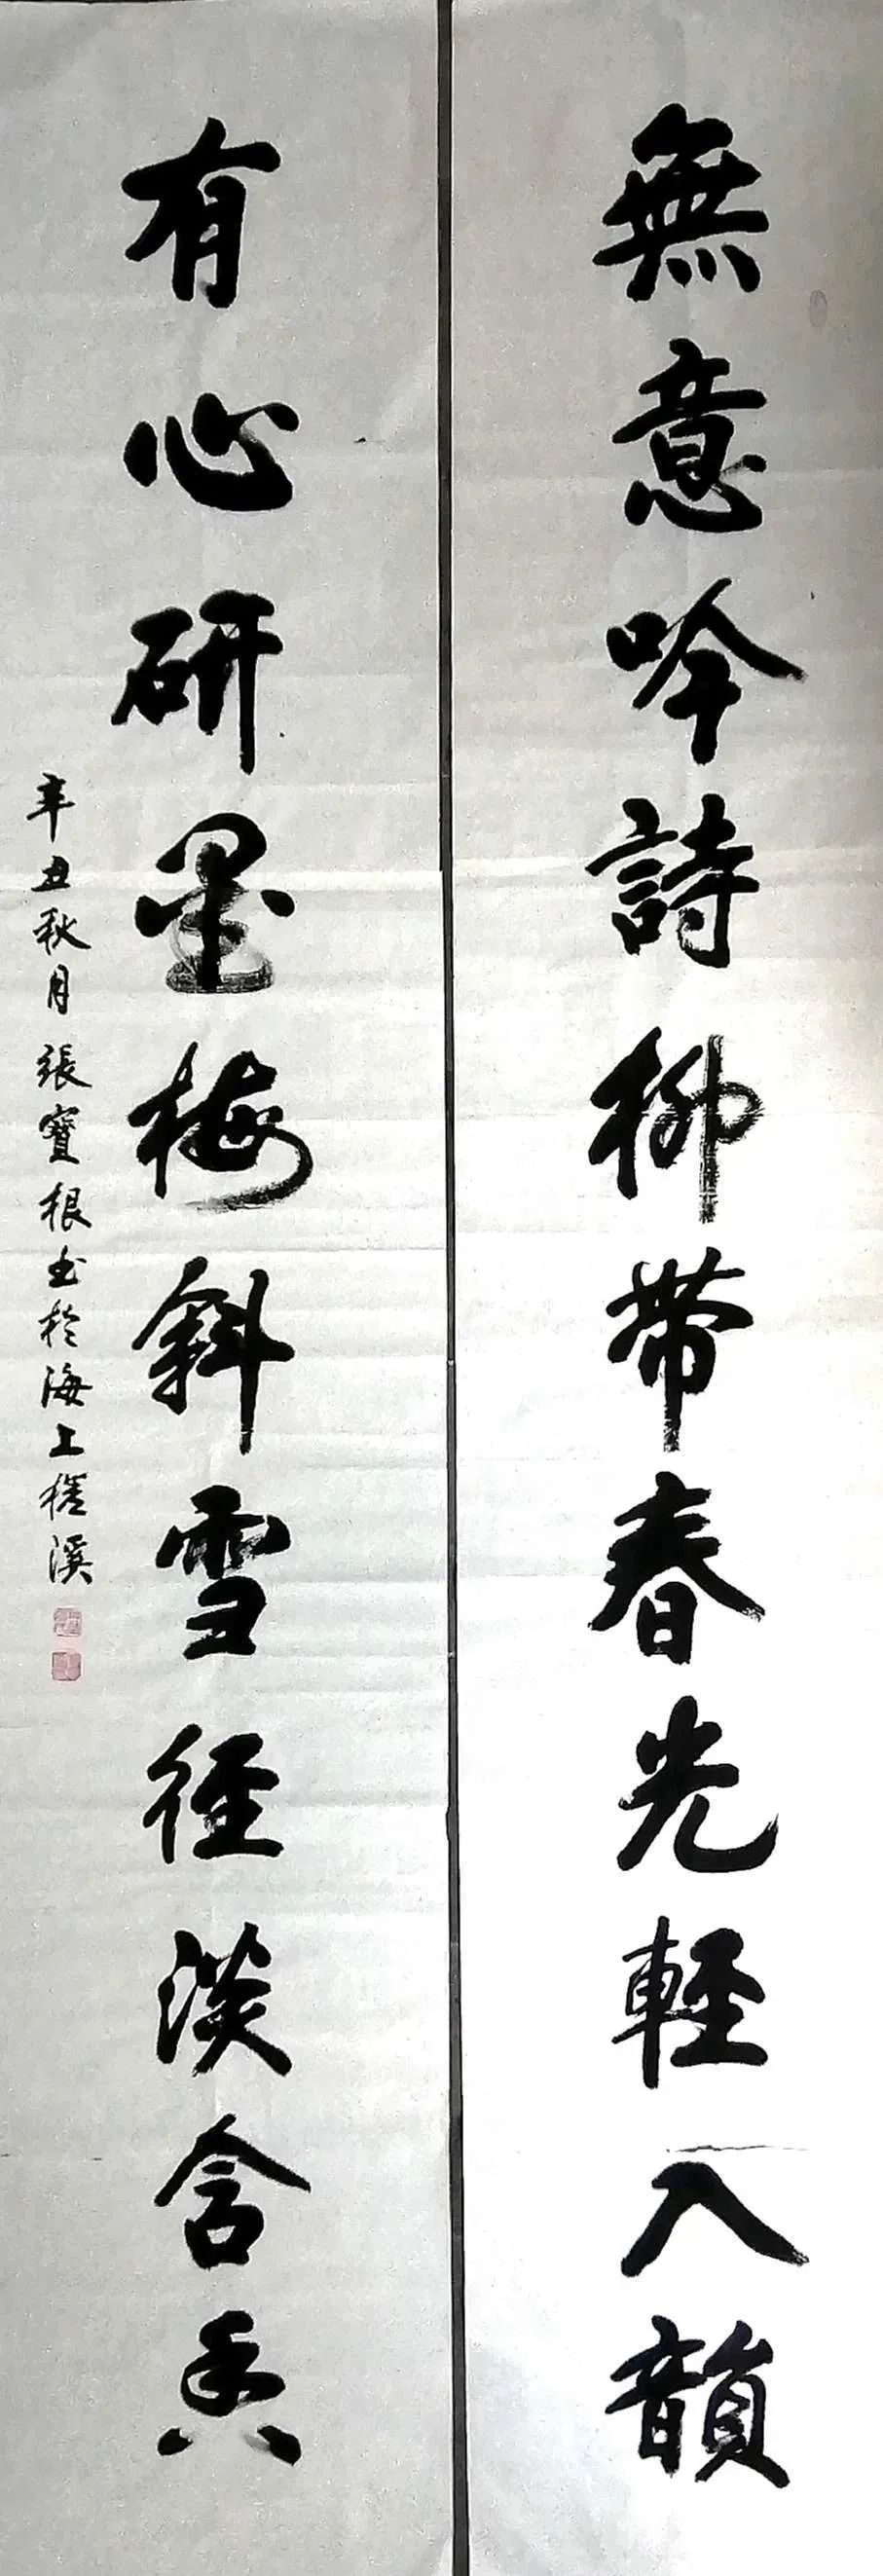 無意吟詩柳帶春光輕入韻
有心研墨梅斜雪徑淡含香
辛丑秋月張寶根书於海上槎溪